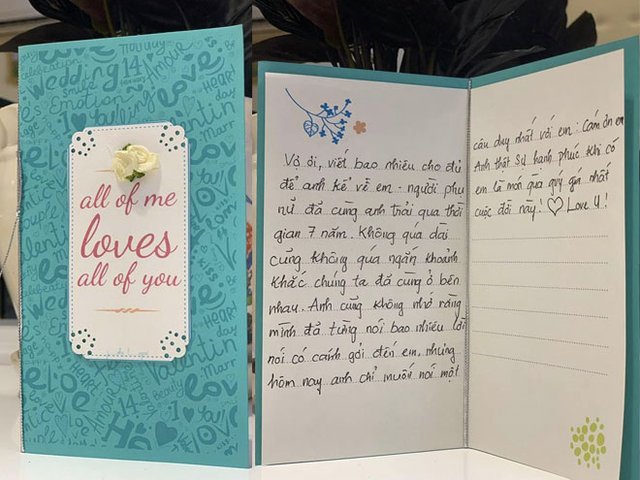 all of me
loves
all of you
Vợ ơi, viết bao nhiêu cho đủ
để anh kể về em - người phụ
nữ đã cùng anh trải qua thời
gian 7 năm. Không quá dài
cũng không quá ngắn khoảnh
khắc chúng ta đã cùng ở bên
nhau. Anh cũng không nhớ rằng
mình đã từng nói bao nhiêu lời
nói có cánh gởi đến em, nhưng
hôm nay anh chỉ muốn nói một
câu duy nhất với em: Cám ơn em
Anh thật sự hạnh phúc khi có
em là món quà quý giá nhất
cuộc đời này! ♡ Love U!